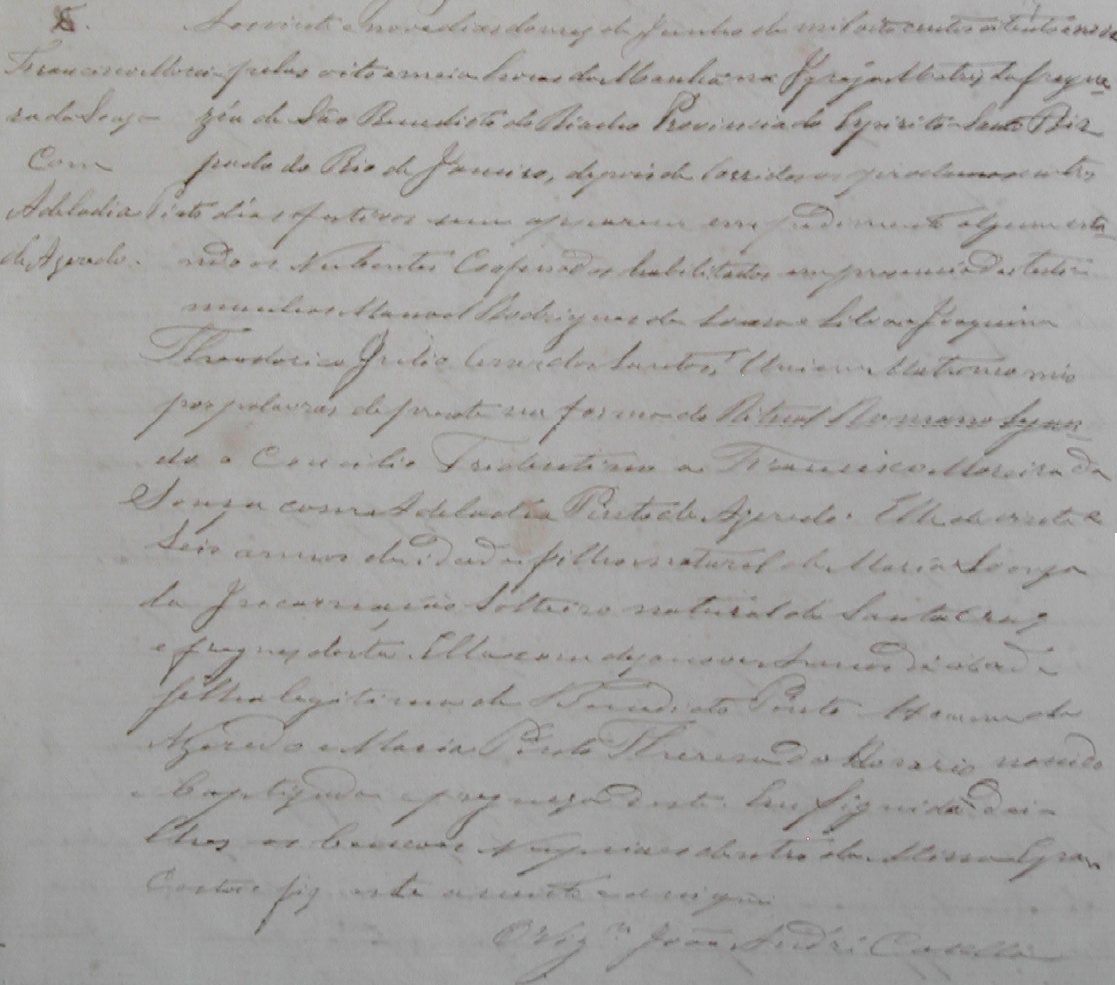 8.
Francisco Morei
ra da Souza
Com
Adeladia Pinto
de Azeredo.
Aos vinte e nove dias do mez de Junho de mil oito centos oitenta e nove
pelas oito e meia horas da Manhã na Igreja Matriz da fregue
zia de São Benedicto do Riacho Provincia do Espirito Santo Bis
pado do Rio de Janeiro, depois de corridos os proclamas em tres
dias festivos sem aparecer empedimento algum esta
ndo os Nubentes Confessados habilitados em presença das teste
munhas Manoel Rodrigues da Souza e Silva e Joaquim
Theodorico Julio dos Santos, Uni em Matrimonio
por palavras de presente na forma do Ritual Romano Segun
do o Concilio Tridentino a Francisco Moreira da
Souza com Adeladia Pinto de Azeredo. Elle de vinte e
seis annos da idade filho natural de Maria Souza
da Incarnação Solteiro natural de Santa Cruz
e freguez desta. Ella com dezanove annos da idade
filha legitima de Benedicto Pinto Homem da
Azeredo e Maria Pinto Thereza do Rosario nascida
e baptizada e fregueza desta. Em siguida dei
lhes as bençoes Nupciaes dentro da Missa E para
Constar fiz este assento e assigno.
O Vigro João André Casella